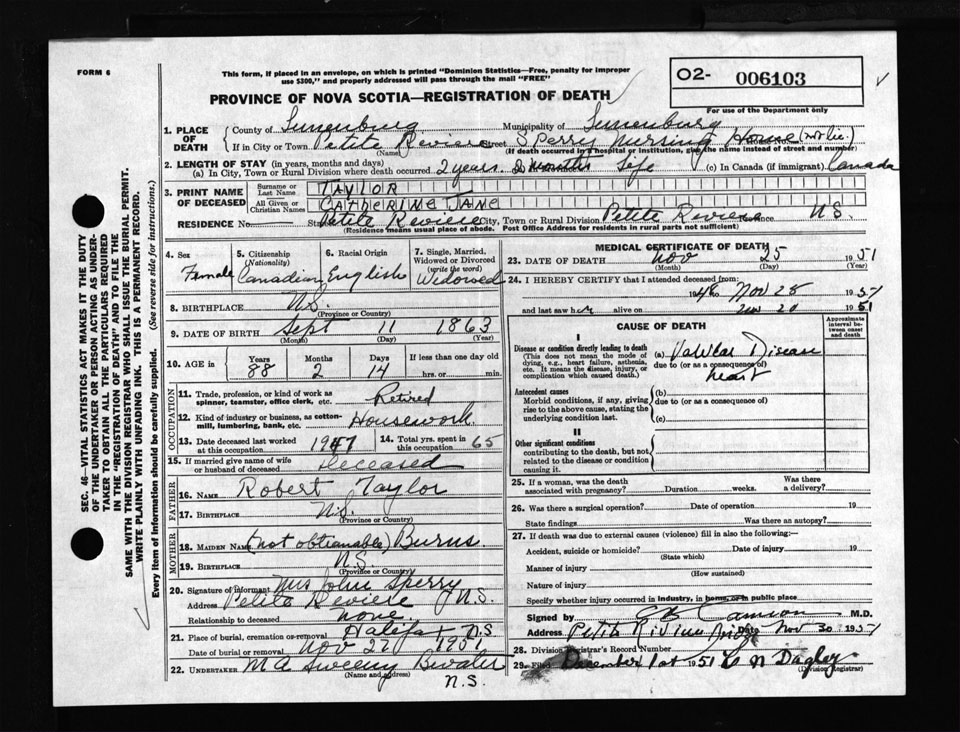 FORM 6
This form, if placed in an envelope, on which is printed "Dominion Statistics—Free, penalty for improper
use $300," and properly addressed will pass through the mail "FREE"
O2- 006103
For use of the Department only
PROVINCE OF NOVA SCOTIA—REGISTRATION OF DEATH
1. PLACE OF DEATH
County of Lunenburg Municipality of Lunenburg
If in City or Town Petite Reviere Street Sperry Nursing Home (not lic.)
(Name) (If death occurred in a hospital or institution, give the name instead of street and number)
2. LENGTH OF STAY (in years, months and days)
(a) In City, Town or Rural Division where death occurred 2 years. 2 months life (c) In Canada (if immigrant) Canada
3. PRINT NAME OF DECEASED
Surname or Last Name TAYLOR
All Given or Christian Names CATHERINE JANE
RESIDENCE No. Street Petite Reviere City, Town or Rural Division Petite Reviere Province N.S.
(Residence means usual place of abode. Post Office Address for residents in rural parts not sufficient)
4. Sex Female
5. Citizenship (Nationality) Canadian
6. Racial Origin English
7. Single, Married, Widowed or Divorced (write the word) Widowed
8. BIRTHPLACE N.S.
(Province or Country)
9. DATE OF BIRTH Sept 11 1863
(Month) (Day) (Year)
10. AGE in Years 88 Months 2 Days 14 If less than one day old hrs. or min.
OCCUPATION
11. Trade, profession, or kind of work as spinner, teamster, office clerk, etc. Retired
12. Kind of industry or business, as cotton-mill, lumbering, bank, etc. Housework.
13. Date deceased last worked at this occupation 1947 14. Total yrs. spent in this occupation 65
15. If married give name of wife or husband of deceased Deceased
FATHER
16. NAME Robert Taylor
17. BIRTHPLACE N.S.
(Province or Country)
MOTHER
18. MAIDEN NAME (not obtianable) Burns.
19. BIRTHPLACE N.S.
(Province or Country)
20. Signature of informant Mrs John Sperry
Address Petite Reviere N.S.
Relationship to deceased none.
21. Place of burial, cremation or removal Halifax N.S.
Date of burial or removal Nov 27 1951
22. UNDERTAKER M A Sweeny
(Name and address)
N.S.
MEDICAL CERTIFICATE OF DEATH
23. DATE OF DEATH Nov 25 1951
(Month) (Day) (Year)
24. I HEREBY CERTIFY that I attended deceased from:
1948 Nov 28 1951
and last saw her alive on Nov 20 1951
CAUSE OF DEATH
Approximate interval between onset and death
I
Disease or condition directly leading to death
(This does not mean the mode of dying, e.g., heart failure, asthenia, etc. It means the disease, injury, or complication which caused death.)
(a) Valvular Disease
due to (or as a consequence of)
heart
Antecedent causes
Morbid conditions, if any, giving rise to the above cause, stating the underlying condition last.
(b)
due to (or as a consequence of)
(c)
II
Other significant conditions
contributing to the death, but not related to the disease or condition causing it.
25. If a woman, was the death associated with pregnancy? Duration weeks. Was there a delivery?
26. Was there a surgical operation? Date of operation 19
State findings Was there an autopsy?
27. If death was due to external causes (violence) fill in also the following:—
Accident, suicide or homicide? Date of injury 19
(State which)
Manner of injury
(How sustained)
Nature of injury
Specify whether injury occurred in industry, in home, or in public place
Signed by M.D.
Address Petite Riviere Bridge Date Nov 30 1951
28. Division Registrar's Record Number
29. Filed December 1st 1951
(Division Registrar)
SEC. 46—VITAL STATISTICS ACT MAKES IT THE DUTY
OF THE UNDERTAKER OR PERSON ACTING AS UNDER-
TAKER TO OBTAIN ALL THE PARTICULARS REQUIRED
IN THE "REGISTRATION OF DEATH" AND TO FILE THE
SAME WITH THE DIVISION REGISTRAR WHO SHALL ISSUE THE BURIAL PERMIT.
WRITE PLAINLY WITH UNFADING INK. THIS IS A PERMANENT RECORD.
Every item of information should be carefully supplied. (See reverse side for instructions.)